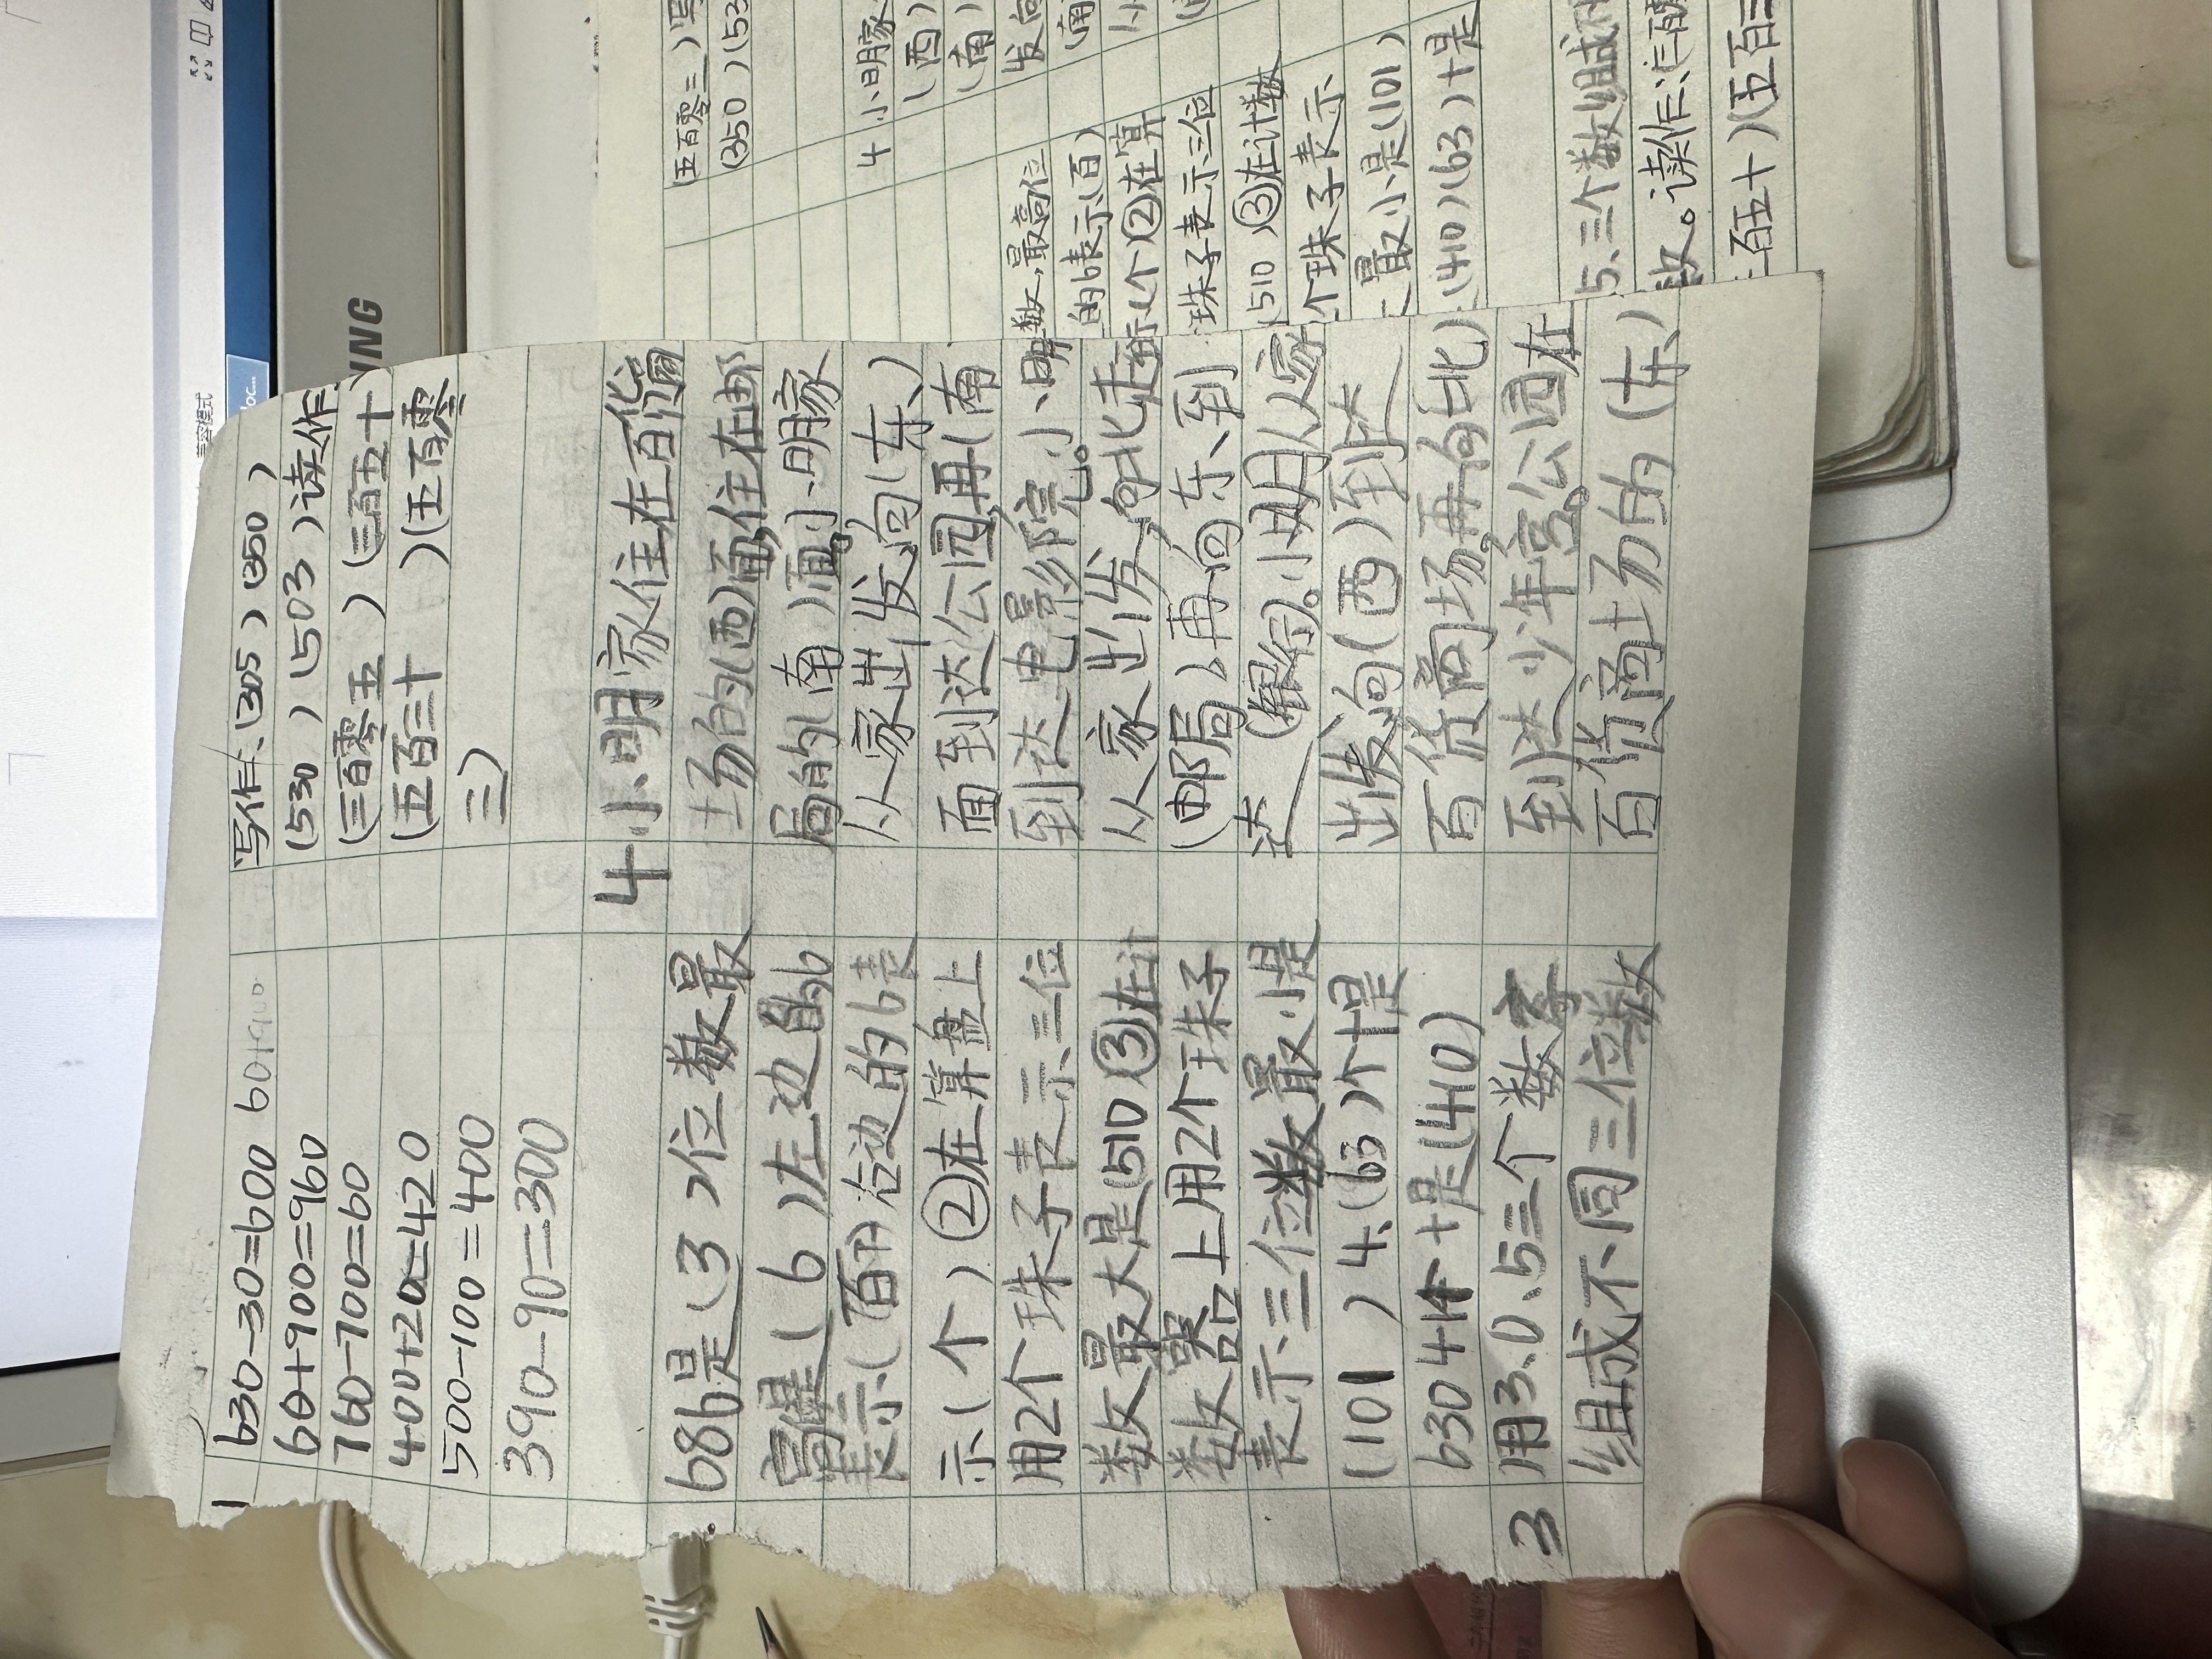 1 630-30=600 60+900
60+900=960
760-700=60
400+20=420
500-100=400
390-90=300
686是(3)位数最
高是(6)左边的6
表示(百)右边的6表
示(个)②在算盘上
用2个珠子表示三位
数最大是(510 ③在计
数器上用2个珠子
表示三位数最小是
(101)4、(63)个十是
630 41个十是(410)
3 用3、0、5三个数字
组成不同三位数
写作:(305)(350)
(530)(503)读作
(三百零五)(三百五十
(五百三十)(五百零
三)
4 小明家住在百货商
场的(西)面,住在邮
局的(南)面,小明家
从家出发,向(东)
面到达公园,再(南
到达电影院。小明
从家出发,向北走
(邮局)再向东、到
达(银行)。小明从家
出发,向(西)到达
百货商场。再向(北)
到达少年宫。公园在
百货商场的(东)
五百零三)写
(350)(53
4 小明家
(西)
(南)
发向
(南
数,最高位
的6表示(百)
示(个)②在算
珠子表示三位
(510)③在计数
个珠子表示
最小是(101)
(410)(63)十是
5、三个数组成不
数。读作:(三百
百五十)(五百三